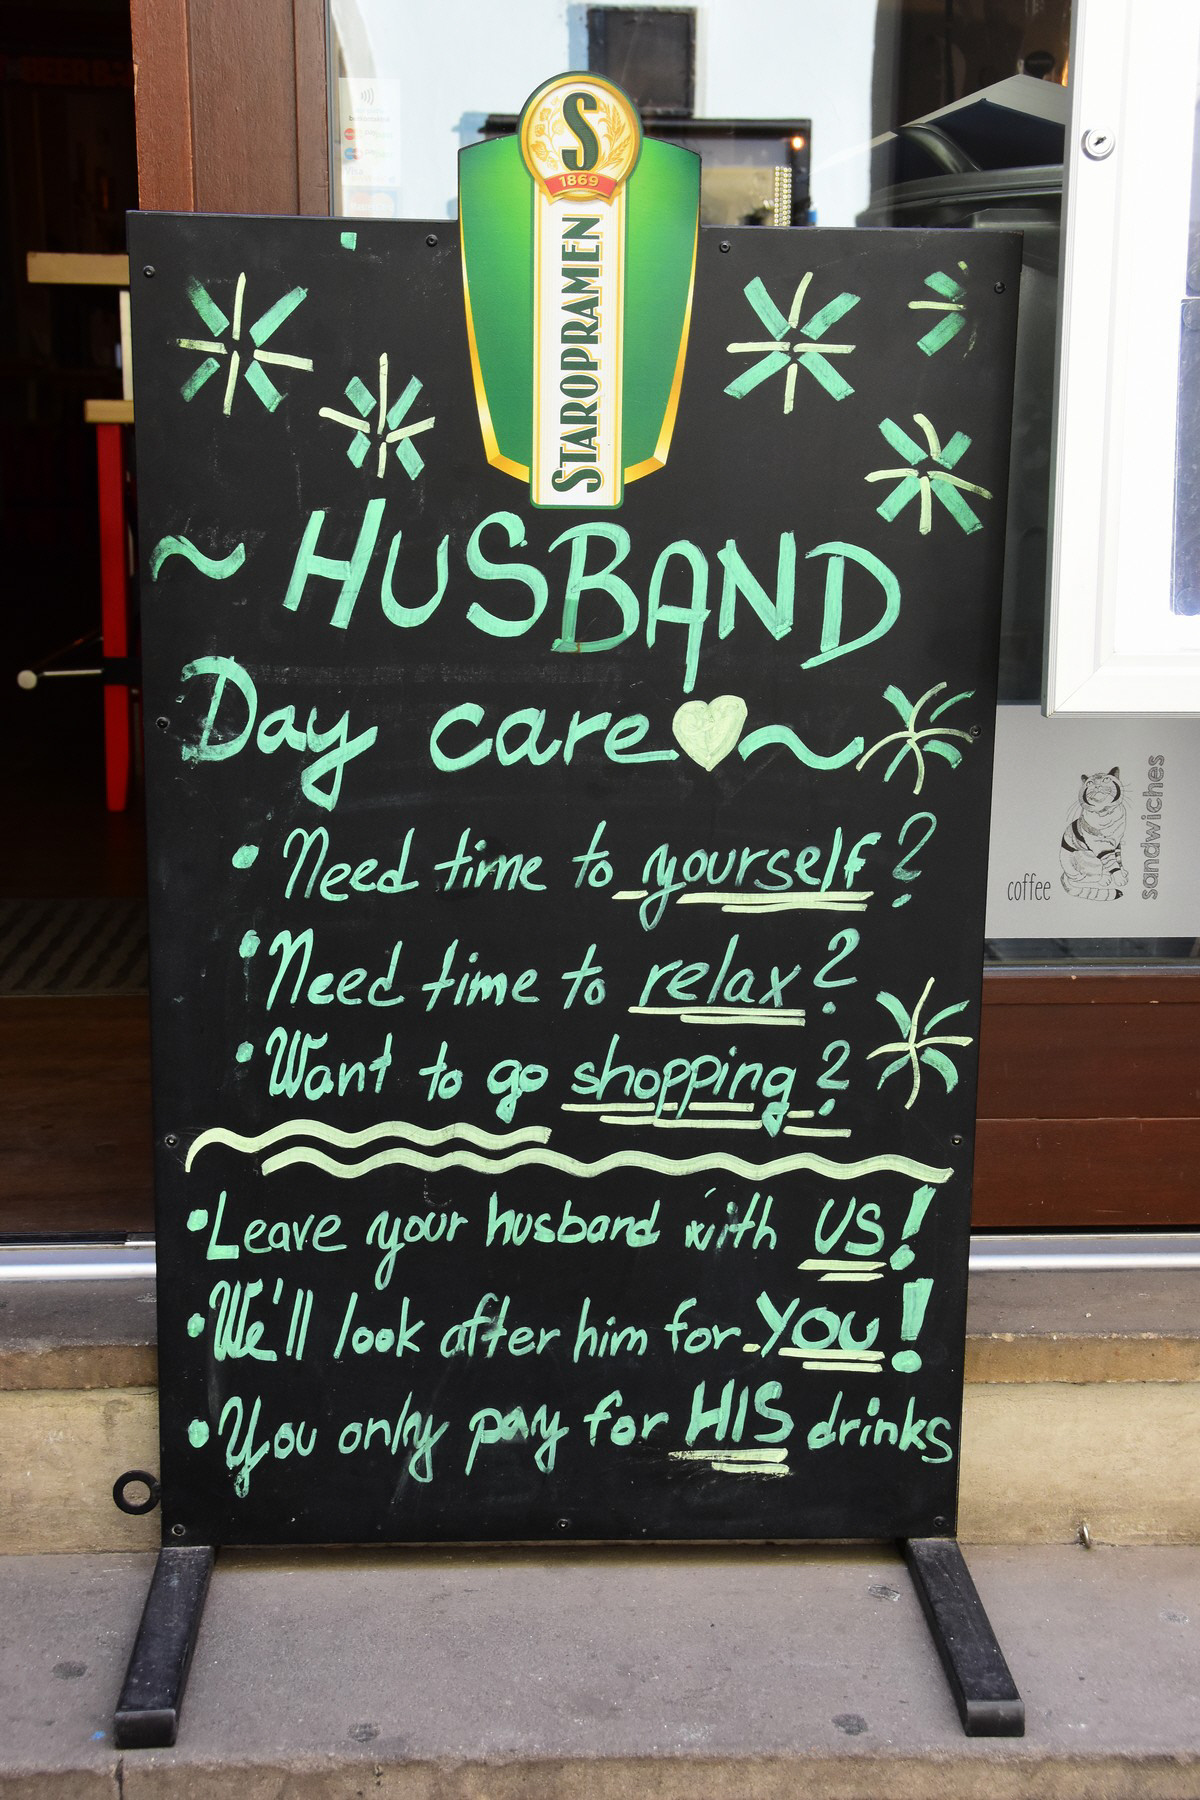 S
1869
STAROPRAMEN
~ HUSBAND
Day care ~
• Need time to yourself?
• Need time to relax?
• Want to go shopping?
• Leave your husband with US!
• We'll look after him for YOU!
• You only pay for HIS drinks
coffee
sandwiches